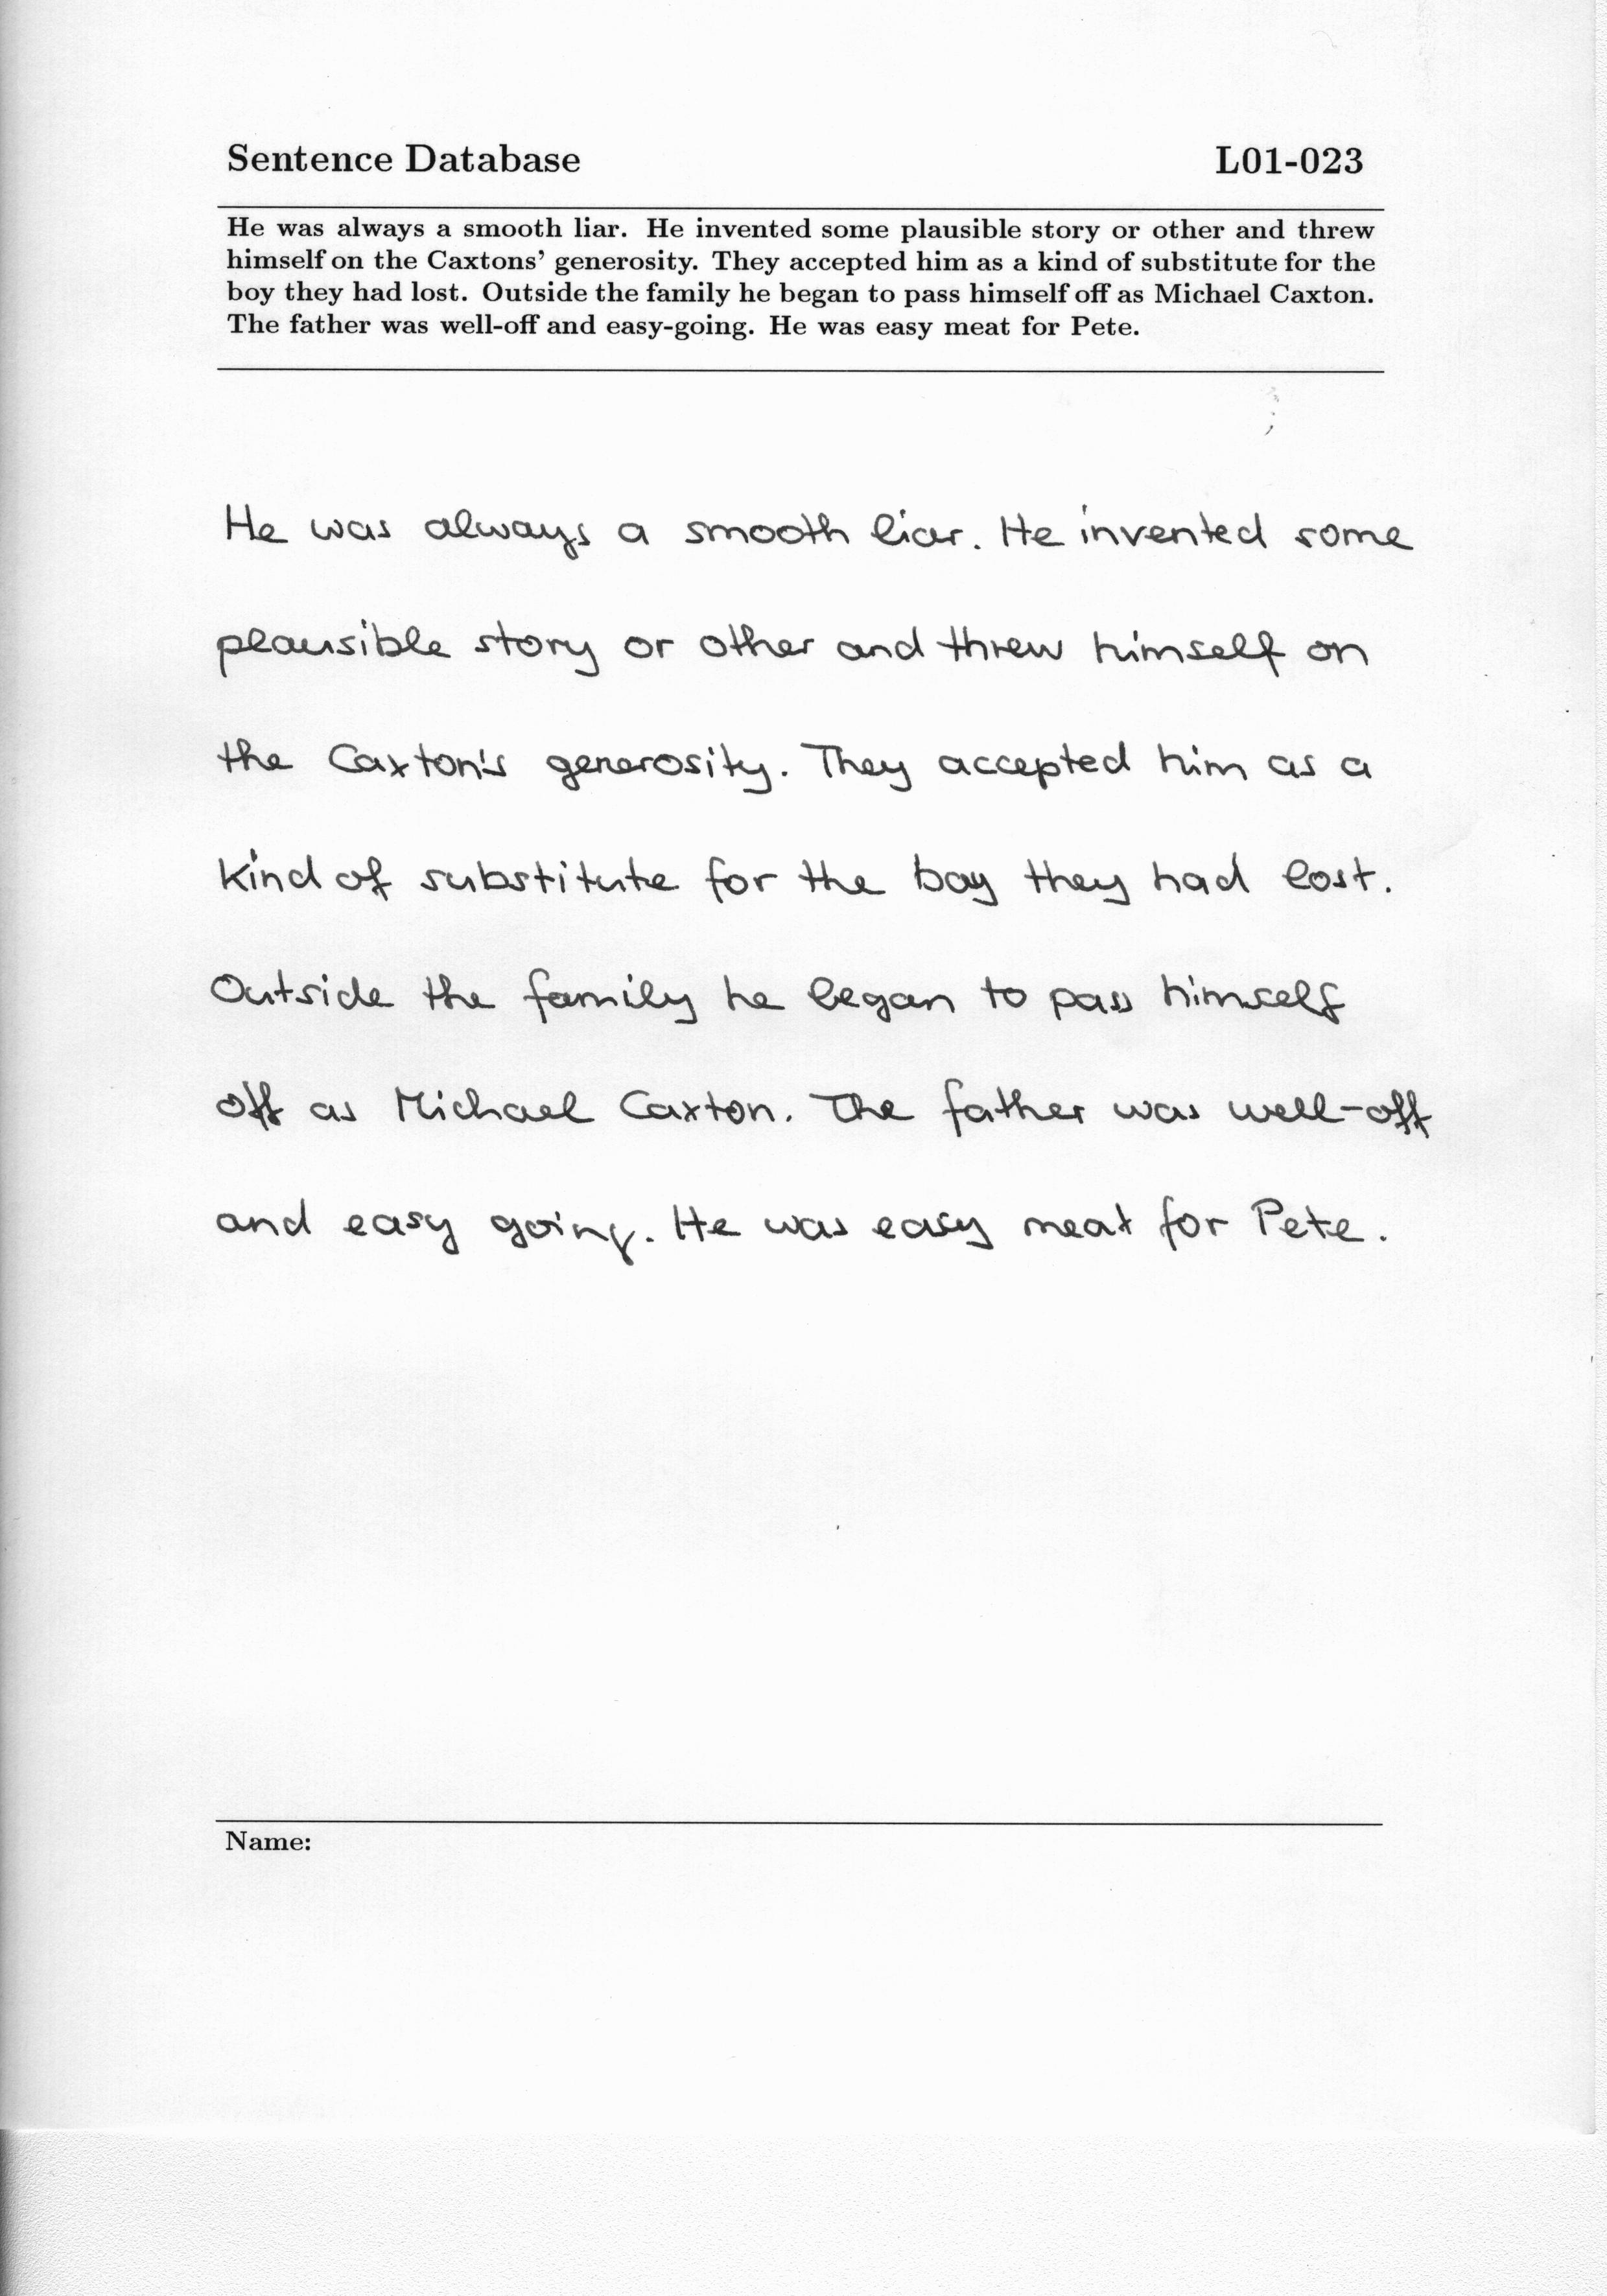 Sentence Database L01-023
He was always a smooth liar. He invented some plausible story or other and threw
himself on the Caxtons' generosity. They accepted him as a kind of substitute for the
boy they had lost. Outside the family he began to pass himself off as Michael Caxton.
The father was well-off and easy-going. He was easy meat for Pete.
He was always a smooth liar. He invented some
plausible story or other and threw himself on
the Caxton's generosity. They accepted him as a
kind of substitute for the boy they had lost.
Outside the family he began to pass himself
off as Michael Caxton. The father was well-off
and easy going. He was easy meat for Pete.
Name: